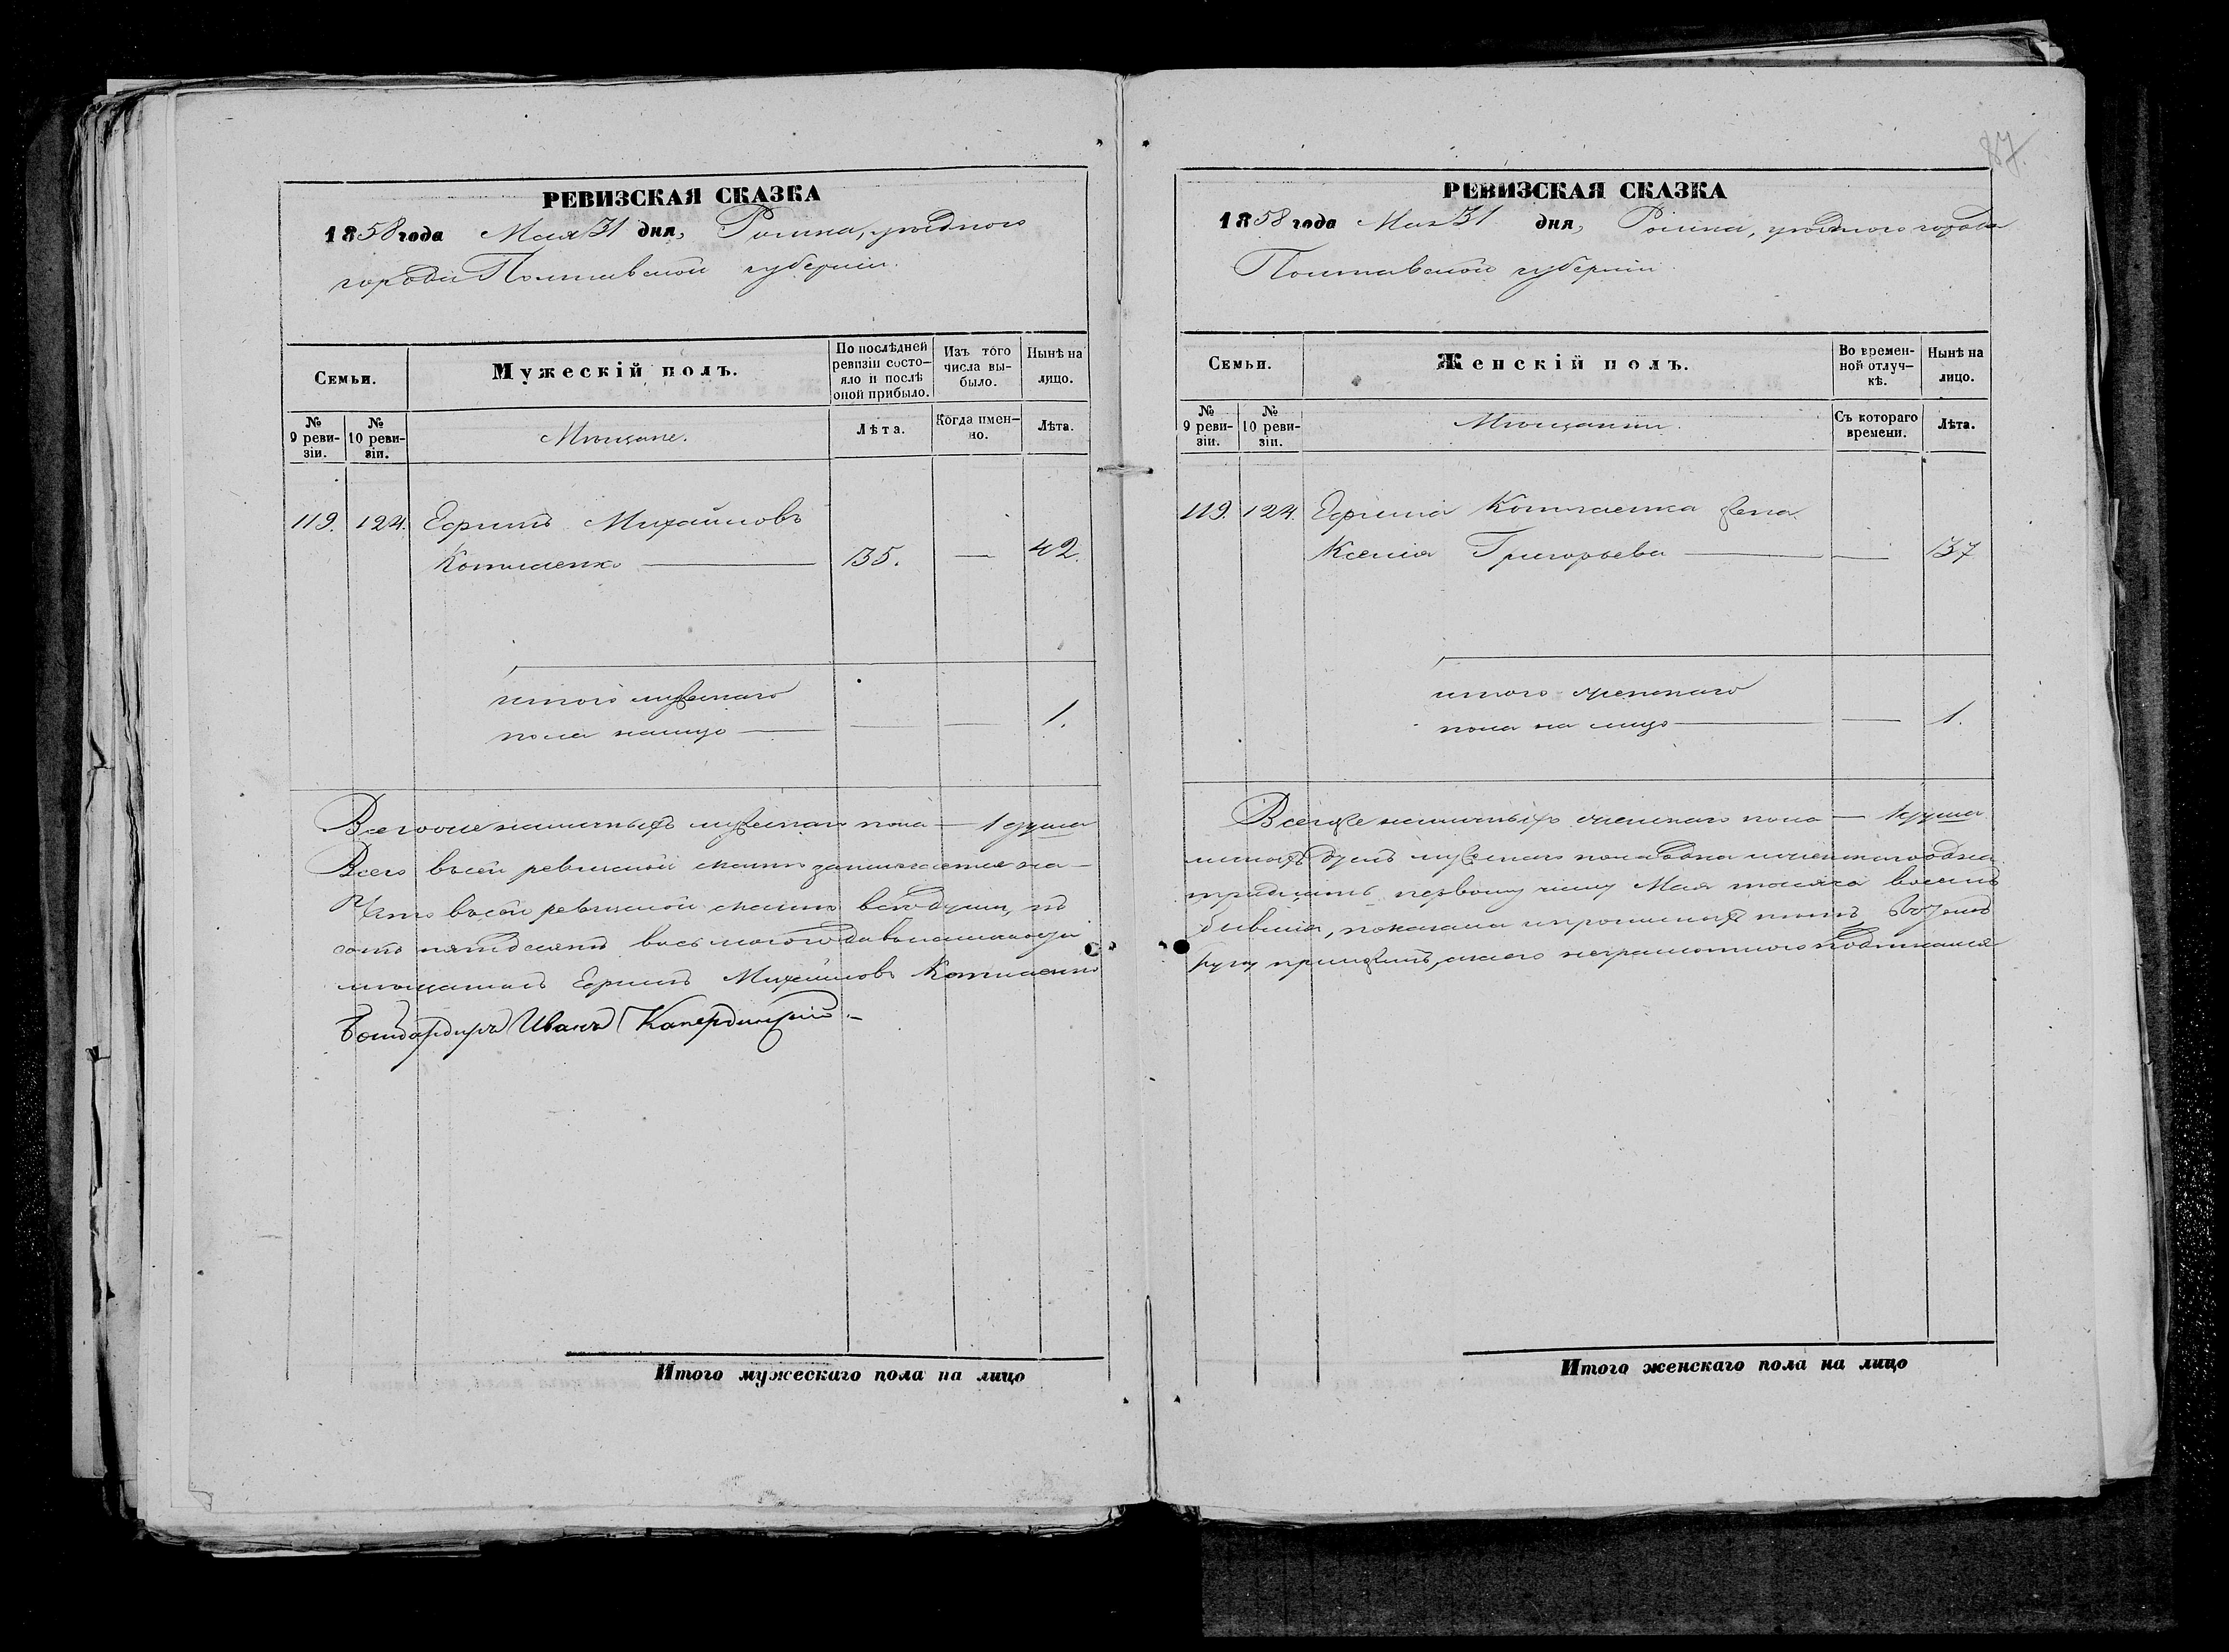 РЕВИЗСКАЯ СКАЗКА
1858 года Мая 31 дня, Ромна, уѣзднаго
города Полтавской губерніи.
Семьи.
Мужескій полъ.
По послѣдней ревизіи состо-яло и послѣ оной прибыло.
Изъ того числа вы-было.
Нынѣ на лицо.
№ 9 реви-зіи.
№ 10 реви-зіи.
Мѣщане.
Лѣта.
Когда имен-но.
Лѣта.
119. 124. Ефимъ Михайловъ
Котляенко — 35. — 42.
итого мужескаго
пола налицо — — — 1.
Всего же наличныхъ мужескаго пола — 1 душа
Всего въ сей ревизской сказкѣ заключается на-
Что въ сей ревизской сказкѣ всѣ души, къ
сотъ пятдесятъ восьмого года
мѣщанинъ Ефимъ Михайловъ Котляенко
Бомбардиръ Иванъ
Итого мужескаго пола на лицо
87.
РЕВИЗСКАЯ СКАЗКА
1858 года Мая 31 дня, Ромна, уѣзднаго города
Полтавской губерніи.
Семьи.
Женскій полъ.
Во времен-ной отлуч-кѣ.
Нынѣ на лицо.
№ 9 реви-зіи.
№ 10 реви-зіи.
Мѣщанки.
Съ котораго времени.
Лѣта.
119. 124. Ефима Котляенка жена
Ксенія Григорьева — — 37
итого женскаго
пола на лицо — — 1.
Всего же наличныхъ женскаго пола — 1 душа
личныхъ душъ мужескаго пола одна и женскаго одна.
тридцать первому числу Мая тысяча восемь
бывшія, показаны и прописныхъ нѣтъ,
руку приложилъ, а за него неграмотнаго подписался
Итого женскаго пола на лицо